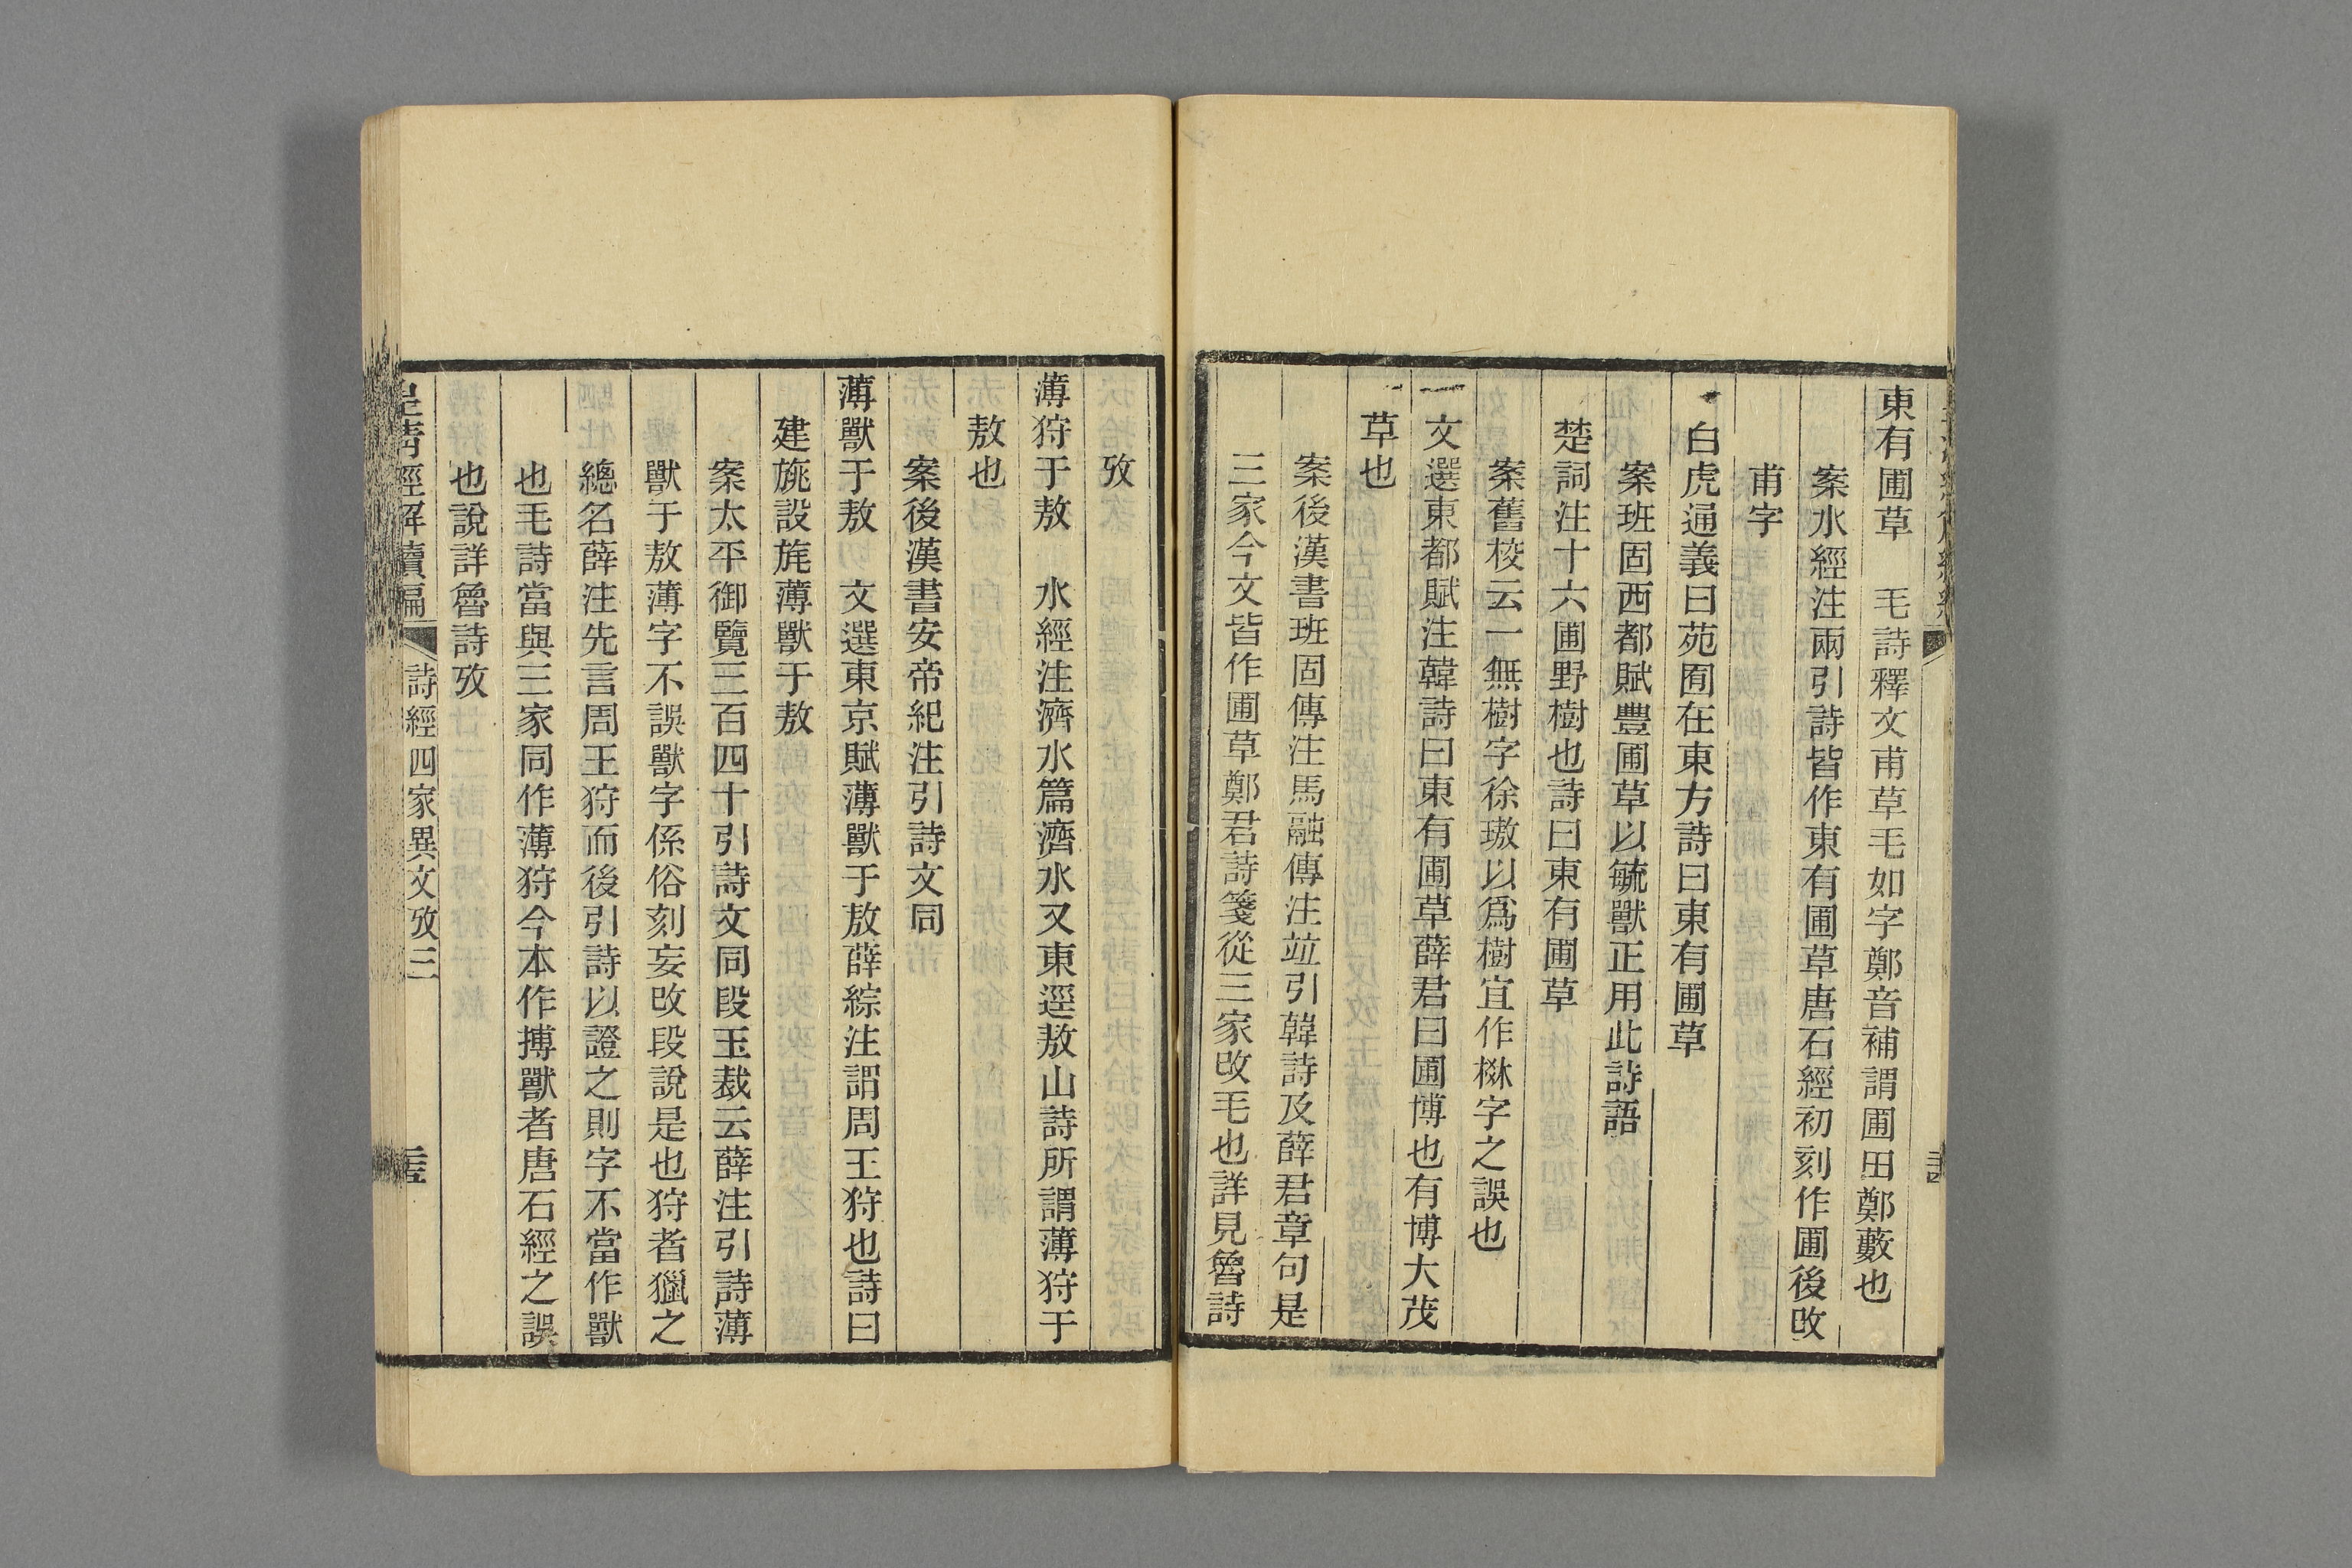 東有圃草　毛詩釋文甫草毛如字鄭音補謂圃田鄭藪也
案水經注兩引詩皆作東有圃草唐石經初刻作圃後改
甫字
白虎通義曰苑囿在東方詩曰東有圃草
案班固西都賦豐圃草以毓獸正用此詩語
楚詞注十六圃野樹也詩曰東有圃草
案舊校云一無樹字徐璈以爲樹宜作楙字之誤也
文選東都賦注韓詩曰東有圃草薛君曰圃博也有博大茂
草也
案後漢書班固傳注馬融傳注竝引韓詩及薛君章句是
三家今文皆作圃草鄭君詩箋從三家改毛也詳見魯詩
攷
薄狩于敖　水經注濟水篇濟水又東逕敖山詩所謂薄狩于
敖也
案後漢書安帝紀注引詩文同
薄獸于敖　文選東京賦薄獸于敖薛綜注謂周王狩也詩曰
建旐設旄薄獸于敖
案太平御覽三百四十引詩文同段玉裁云薛注引詩薄
獸于敖薄字不誤獸字係俗刻妄改段說是也狩者獵之
總名薛注先言周王狩而後引詩以證之則字不當作獸
也毛詩當與三家同作薄狩今本作搏獸者唐石經之誤
也說詳魯詩攷
皇清經解續編　詩經四家異文攷三